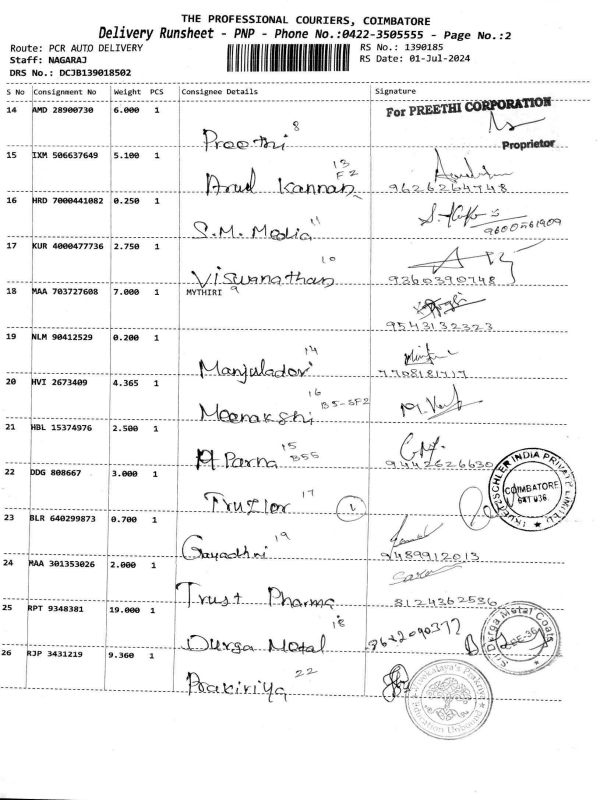 THE PROFESSIONAL COURIERS, COIMBATORE
Delivery Runsheet - PNP - Phone No.:0422-3505555 - Page No.:2
Route: PCR AUTO DELIVERY RS No.: 1390185
Staff: NAGARAJ RS Date: 01-Jul-2024
DRS No.: DCJB139018502
S No Consignment No Weight PCS Consignee Details Signature
14 AMD 28900730 6.000 1 For PREETHI CORPORATION
8
Preethi Proprietor
15 IXM 506637649 5.100 1
13
F2
Arul Kannan 9626264748
16 HRD 7000441082 0.250 1
11
S.M. Media 9600561909
17 KUR 4000477736 2.750 1
10
Viswanathan 9360390748
18 MAA 703727608 7.000 1 MYTHIRI 9
9543132323
19 NLM 90412529 0.200 1
14
Manjuladevi 7708181717
20 HVI 2673409 4.365 1
16
B5-SF2
Meenakshi
21 HBL 15374976 2.500 1
15
B55
A Parna 9442626630
22 DDG 808667 3.000 1
INDIA PRIVATE LIMITED
COIMBATORE
641 036.
17
Truzlor 1
23 BLR 640299873 0.700 1
19
Gayadhri 9489912013
24 MAA 301353026 2.000 1
Trust Pharma 8124262536
25 RPT 9348381 19.000 1
18
Durga Metal
Sri Durga Metal Coats
26 RJP 3431219 9.360 1
22
Prakiriya
Education Unbound